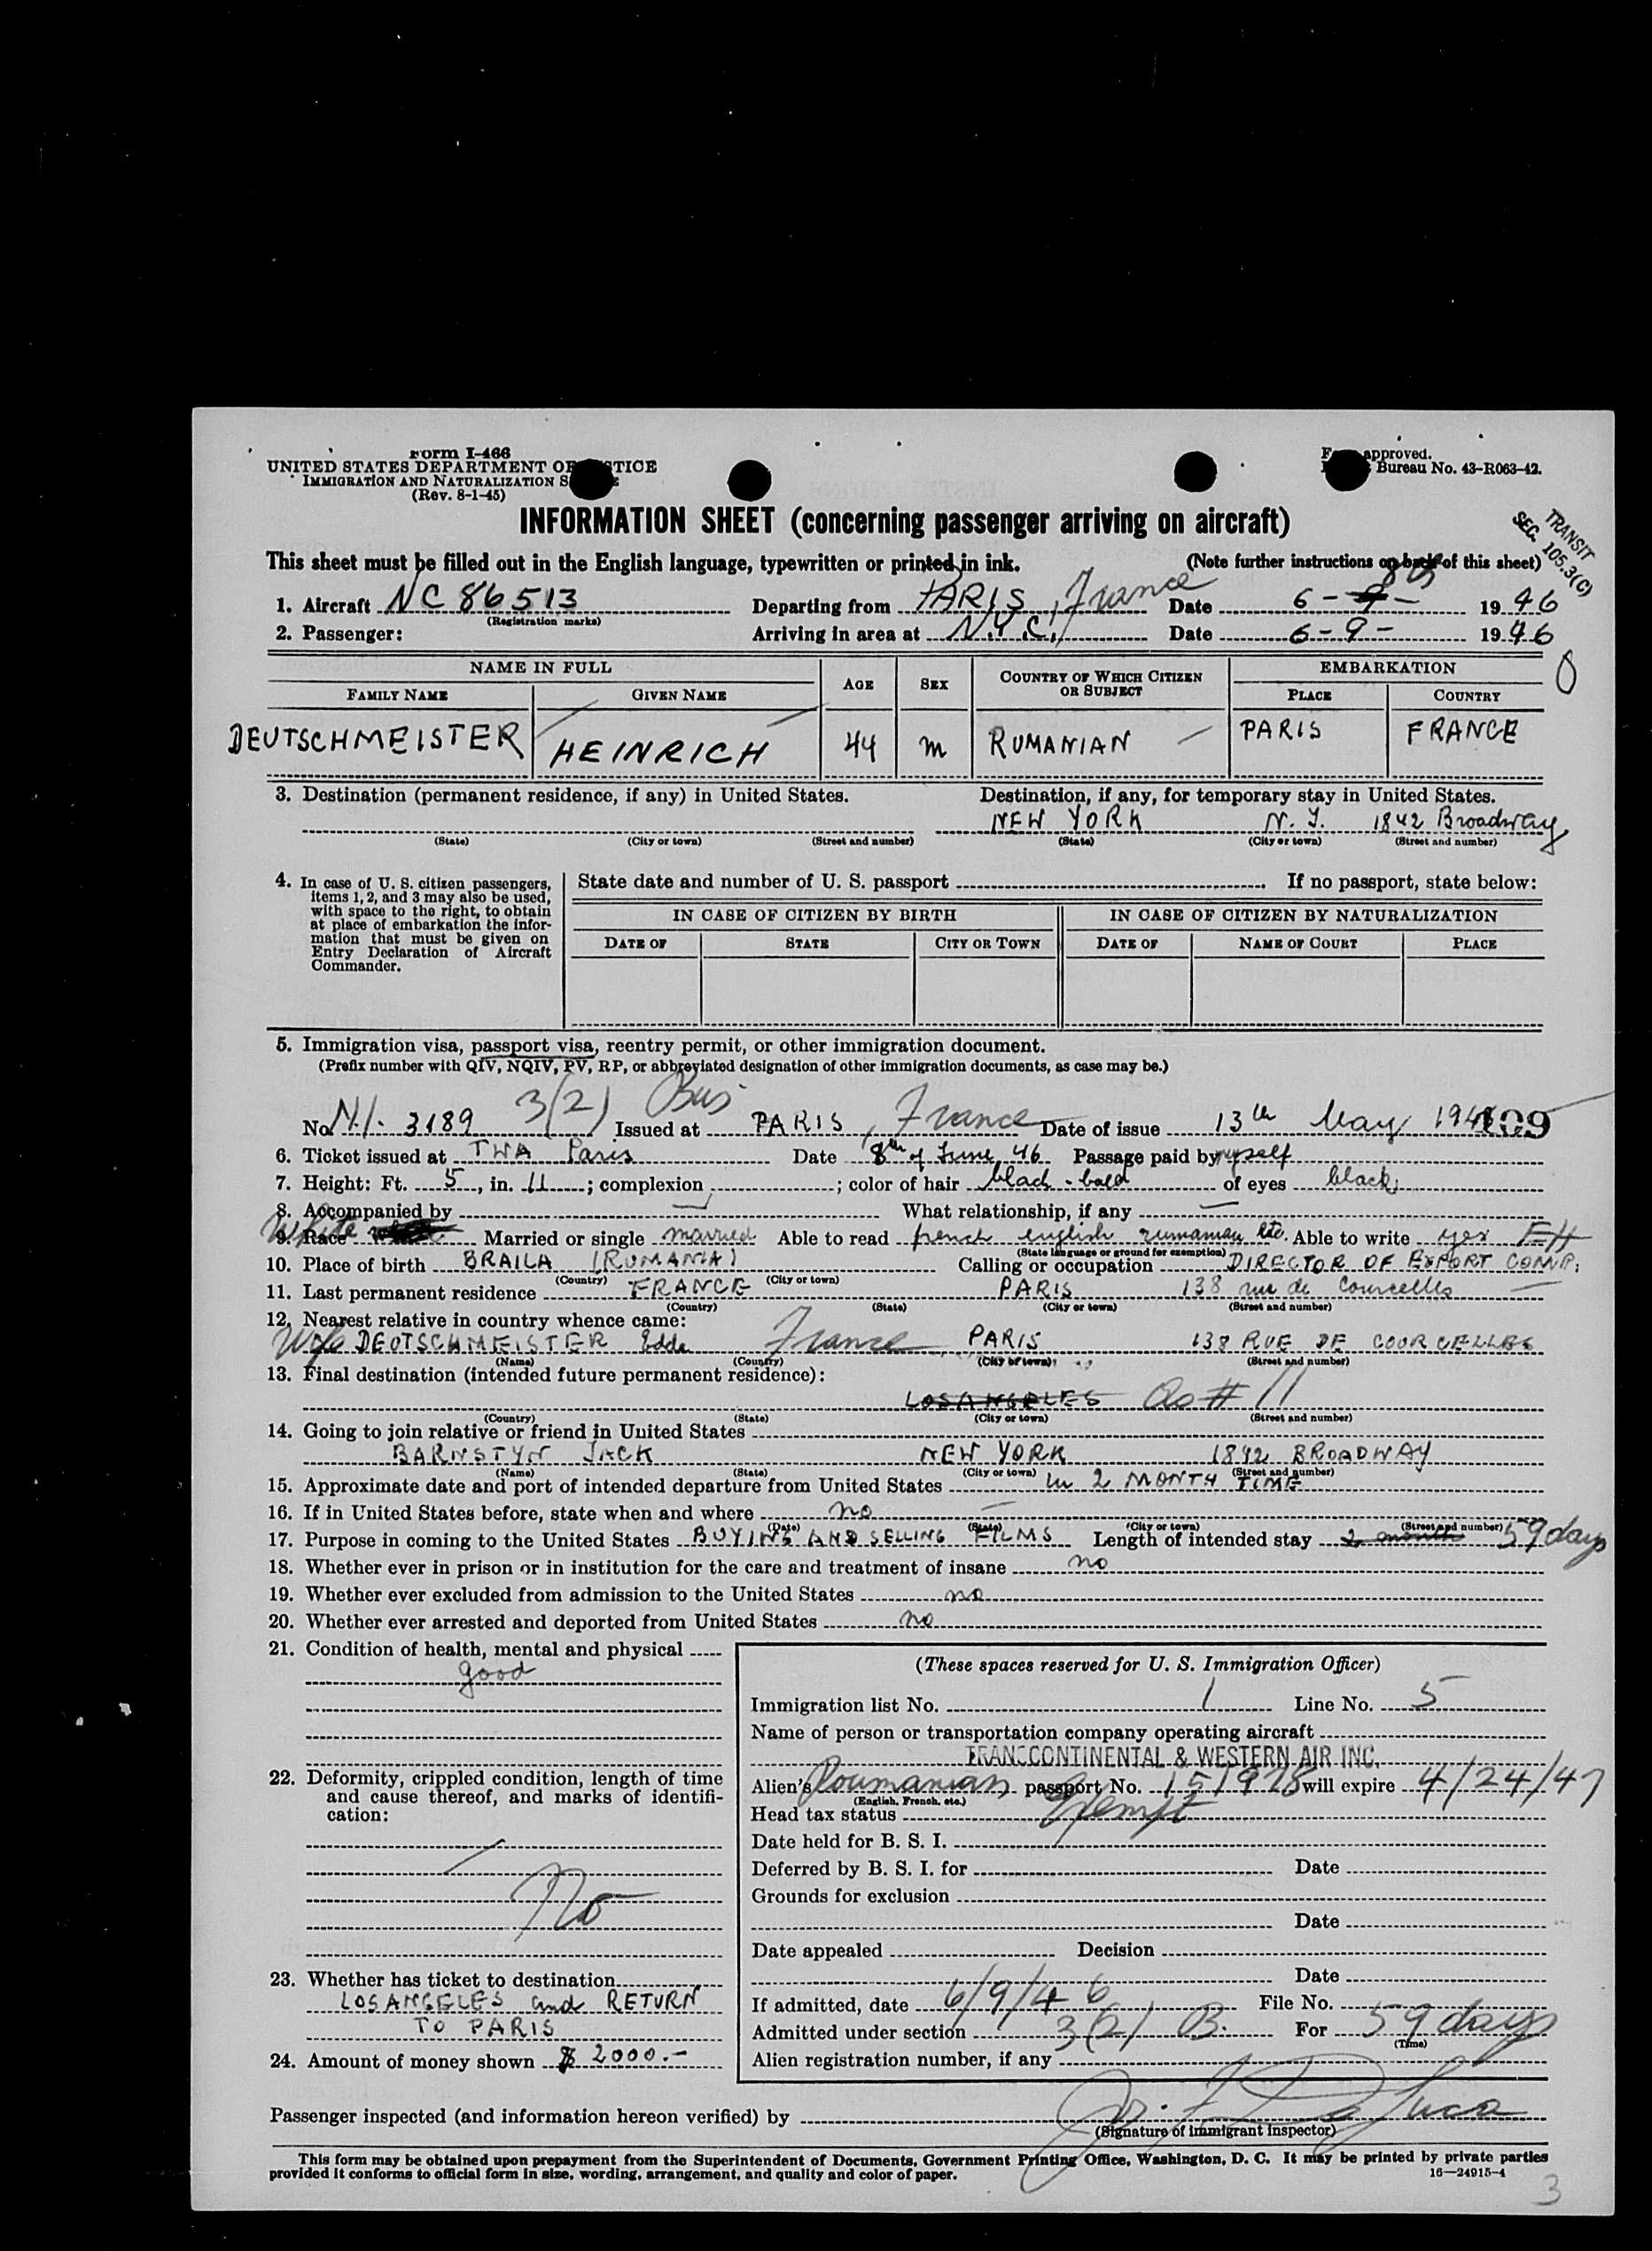 Form I-466
UNITED STATES DEPARTMENT OF JUSTICE
IMMIGRATION AND NATURALIZATION S
(Rev. 8-1-45)
approved.
Bureau No. 43-R063-42.
INFORMATION SHEET (concerning passenger arriving on aircraft)
TRANSIT
SEC. 105.3(C)
This sheet must be filled out in the English language, typewritten or printed in ink. (Note further instructions on back of this sheet)
1. Aircraft NC 86513 Departing from PARIS, France Date 6 - 8 - 1946
(Registration marks)
2. Passenger: Arriving in area at N.Y.C. Date 6-9- 1946
NAME IN FULL AGE SEX COUNTRY OF WHICH CITIZEN OR SUBJECT EMBARKATION
FAMILY NAME GIVEN NAME PLACE COUNTRY
DEUTSCHMEISTER HEINRICH 44 m RUMANIAN PARIS FRANCE
3. Destination (permanent residence, if any) in United States. Destination, if any, for temporary stay in United States.
NEW YORK N.Y. 1842 Broadway
(State) (City or town) (Street and number) (State) (City or town) (Street and number)
4. In case of U. S. citizen passengers, items 1, 2, and 3 may also be used, with space to the right, to obtain at place of embarkation the information that must be given on Entry Declaration of Aircraft Commander.
State date and number of U. S. passport If no passport, state below:
IN CASE OF CITIZEN BY BIRTH IN CASE OF CITIZEN BY NATURALIZATION
DATE OF STATE CITY OR TOWN DATE OF NAME OF COURT PLACE
5. Immigration visa, passport visa, reentry permit, or other immigration document.
(Prefix number with QIV, NQIV, PV, RP, or abbreviated designation of other immigration documents, as case may be.)
No. N.I. 3189 3(2) Bus Issued at PARIS, France Date of issue 13th May 194 109
6. Ticket issued at TWA Paris Date 8th of June 46 Passage paid by myself
7. Height: Ft. 5, in. 11; complexion ; color of hair black - bald of eyes black
8. Accompanied by — What relationship, if any —
9. Race White Married or single married Able to read french english rumanian etc. Able to write yes
(State language or ground for exemption)
10. Place of birth BRAILA (RUMANIA) Calling or occupation DIRECTOR OF EXPORT COMP.
(Country) (City or town)
11. Last permanent residence FRANCE PARIS 138 rue de Courcelles
(Country) (State) (City or town) (Street and number)
12. Nearest relative in country whence came:
Wife DEUTSCHMEISTER Edda France PARIS 138 RUE DE COURCELLES
(Name) (Country) (City or town) (Street and number)
13. Final destination (intended future permanent residence):
LOSANGELES as # 11
(Country) (State) (City or town) (Street and number)
14. Going to join relative or friend in United States
BARNSTYN JACK NEW YORK 1842 BROADWAY
(Name) (State) (City or town) (Street and number)
15. Approximate date and port of intended departure from United States in 2 MONTH TIME
16. If in United States before, state when and where no —
(Date) (State) (City or town) (Street and number)
17. Purpose in coming to the United States BUYING AND SELLING FILMS Length of intended stay 2 month 59 days
18. Whether ever in prison or in institution for the care and treatment of insane no
19. Whether ever excluded from admission to the United States no
20. Whether ever arrested and deported from United States no
21. Condition of health, mental and physical
good
22. Deformity, crippled condition, length of time and cause thereof, and marks of identification:
No
23. Whether has ticket to destination
LOSANGELES and RETURN
TO PARIS
24. Amount of money shown $ 2000.-
(These spaces reserved for U. S. Immigration Officer)
Immigration list No. 1 Line No. 5
Name of person or transportation company operating aircraft
TRANSCONTINENTAL & WESTERN AIR INC.
Alien's Roumanian passport No. 151975 will expire 4/24/47
(English, French, etc.)
Head tax status Exempt
Date held for B. S. I.
Deferred by B. S. I. for Date
Grounds for exclusion
Date
Date appealed Decision
Date
If admitted, date 6/9/46 File No.
Admitted under section 3(2) B. For 59 days
(Time)
Alien registration number, if any
Passenger inspected (and information hereon verified) by
(Signature of Immigrant Inspector)
This form may be obtained upon prepayment from the Superintendent of Documents, Government Printing Office, Washington, D. C. It may be printed by private parties
provided it conforms to official form in size, wording, arrangement, and quality and color of paper. 16—24915-4
3